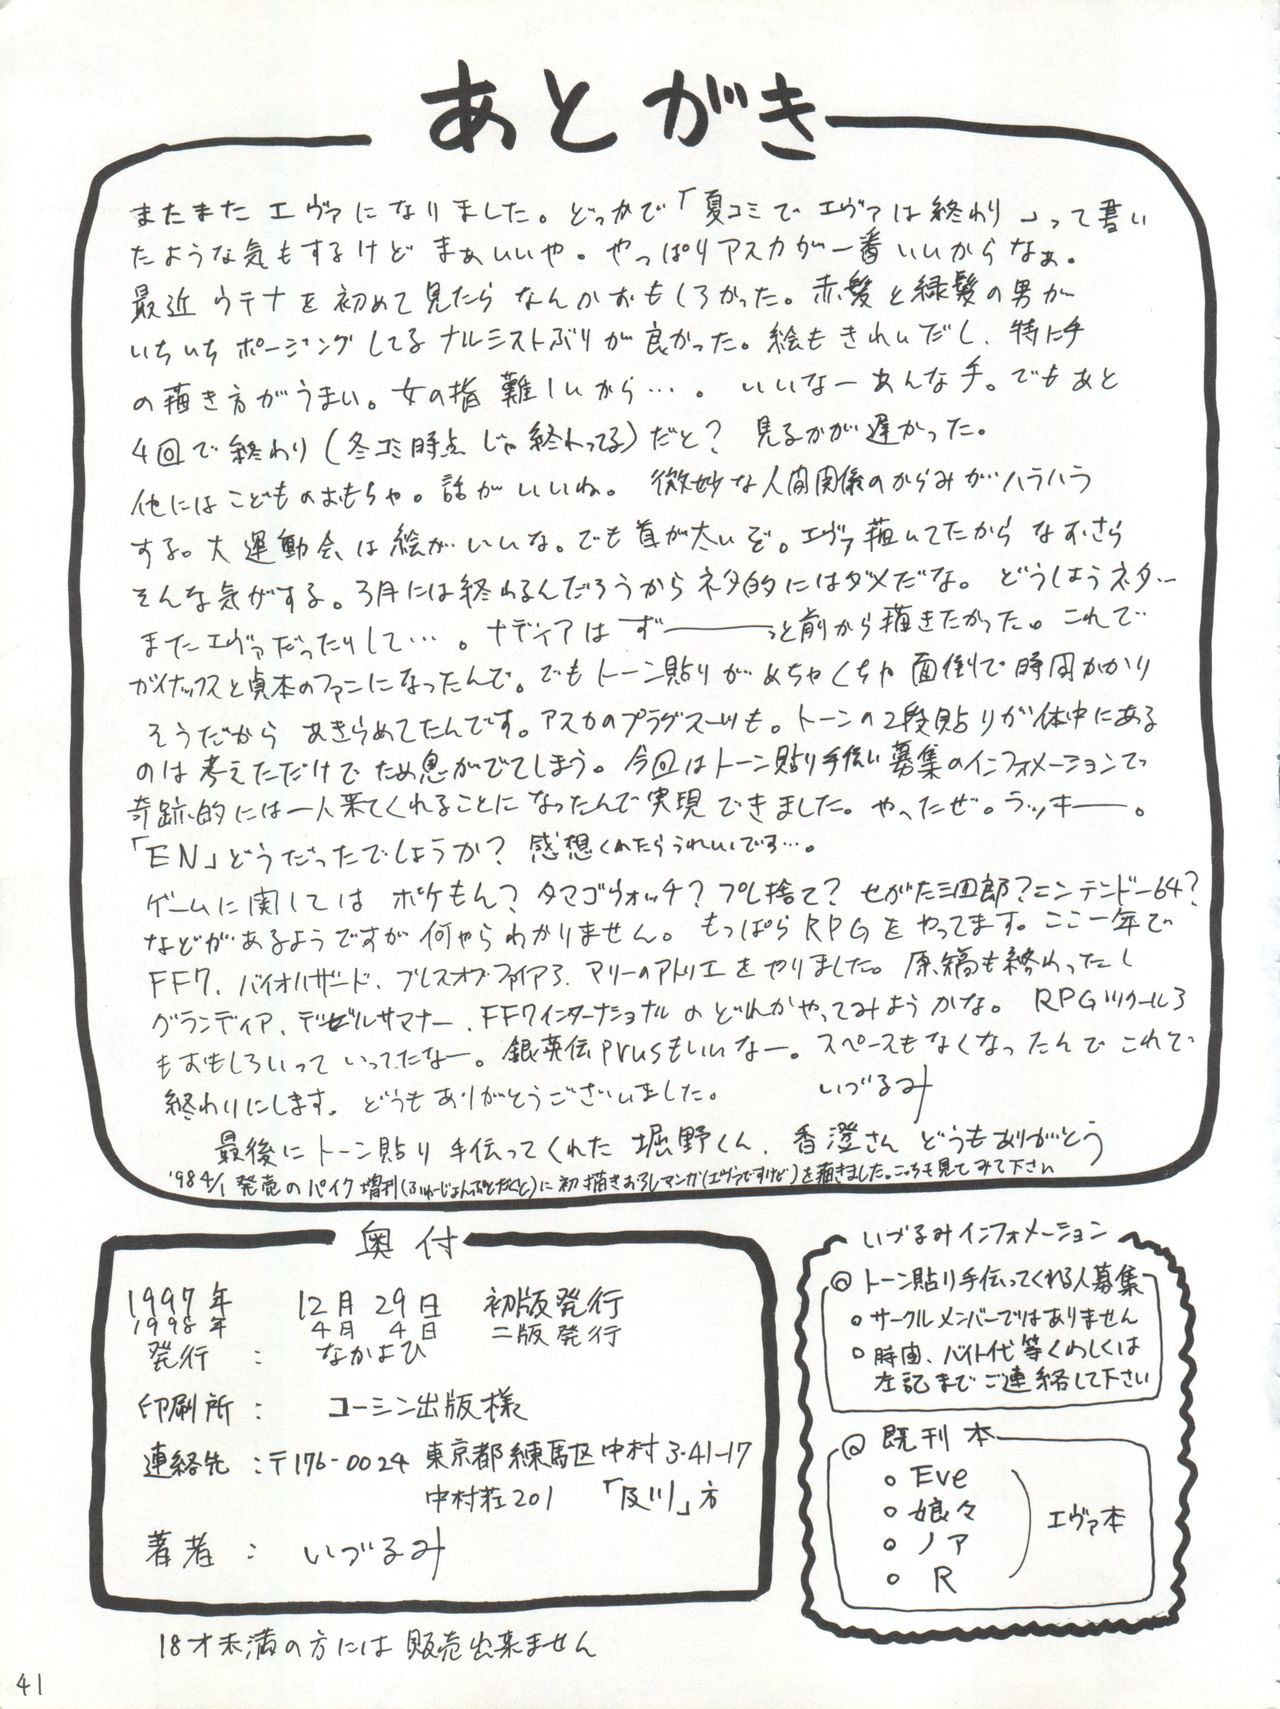 あとがき
またまた エヴァになりました。どっかで「夏コミで エヴァは終わり」って書い
たような気もするけど まぁいいや。やっぱりアスカが一番いいからなぁ。
最近 ウテナを初めて見たら なんかおもしろかった。赤髪と緑髪の男が
いちいち ポージングしてる ナルシストぶりが良かった。絵もきれいだし、特に手
の描き方がうまい。女の指 難しいから…。 いいなーあんな手。でもあと
4回で終わり(冬コミ時点じゃ終わってる)だと? 見るかが遅かった。
他にはこどものおもちゃ。話がいいね。 微妙な人間関係のからみがハラハラ
する。大運動会は絵がいいな。でも首が太いぞ。エヴァ描いてたからなおさら
そんな気がする。3月には終わるんだろうからネタ的にはダメだな。 どうしようネタ…
またエヴァだったりして…。ナディアはずーーーっと前から描きたかった。これで
ガイナックスと貞本のファンになったんで。でもトーン貼りがめちゃくちゃ面倒で時間かかり
そうだから あきらめてたんです。アスカのプラグスーツも。トーンの2段貼りが体中にある
のは考えただけでため息がでてしまう。今回はトーン貼り手伝い募集のインフォメーションで
奇跡的には一人来てくれることになったんで実現できました。やったぜ。ラッキー。
「EN」どうだったでしょうか? 感想くれたらうれしいです…。
ゲームに関しては ポケもん? タマゴウォッチ? プレ捨て? せがた三四郎?ニンテンドー64?
などがあるようですが 何やらわかりません。もっぱらRPGをやってます。ここ一年で
FF7、バイオハザード、ブレスオブファイア3、マリーのアトリエをやりました。原稿も終わったし
グランディア、デビルサマナー、FF7インターナショナルのどれかやってみようかな。 RPGツクール3
もおもしろいって いってたなー。銀英伝prusもいいなー。スペースもなくなったんで これで
終わりにします。どうもありがとうございました。 いづるみ
最後にトーン貼り手伝ってくれた 堀野くん、香澄さん どうもありがとう
'98 4/1 発売のパイク増刊(ふゅーじょんぷろだくと)に初描きおろしマンガ(エヴァですけど)を描きました。こっちも見てみて下さい
奥付
1997年 12月 29日 初版発行
1998年 4月 4日 二版発行
発行 : なかよひ
印刷所 : コーシン出版様
連絡先 : 〒176-0024 東京都練馬区中村3-41-17
中村荘201 「及川」方
著者 : いづるみ
18才未満の方には 販売出来ません
いづるみインフォメーション
◎ トーン貼り手伝ってくれる人募集
○ サークルメンバーではありません
○ 時間、バイト代等くわしくは
左記までご連絡して下さい
◎ 既刊本
○ Eve
○ 娘々
○ ノア
○ R
エヴァ本
41